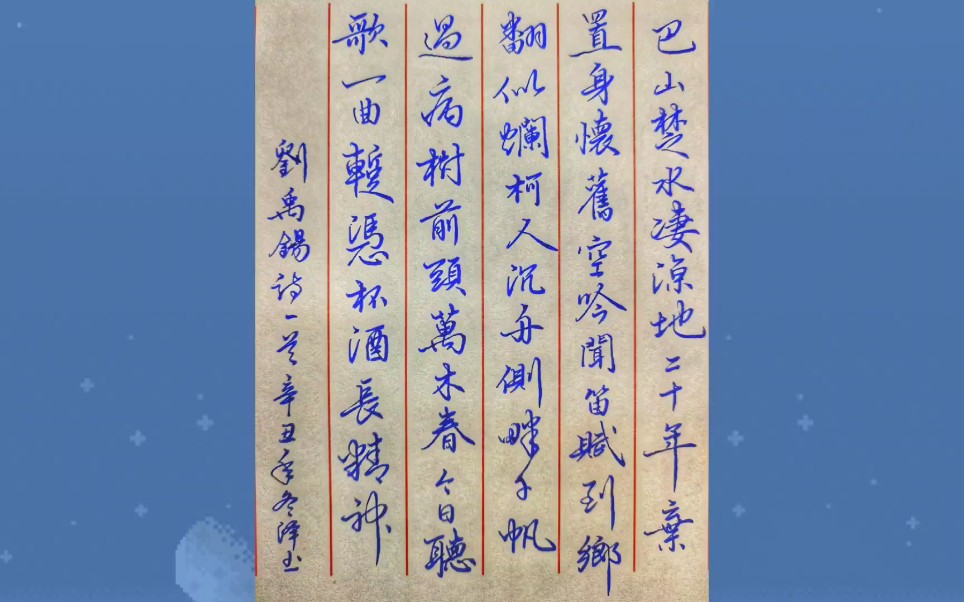 巴山楚水淒涼地二十年棄
置身懷舊空吟聞笛賦到鄉
翻似爛柯人沉舟側畔千帆
過病樹前頭萬木春今日聽
歌一曲暫憑杯酒長精神
劉禹錫詩一首辛丑年冬澤书